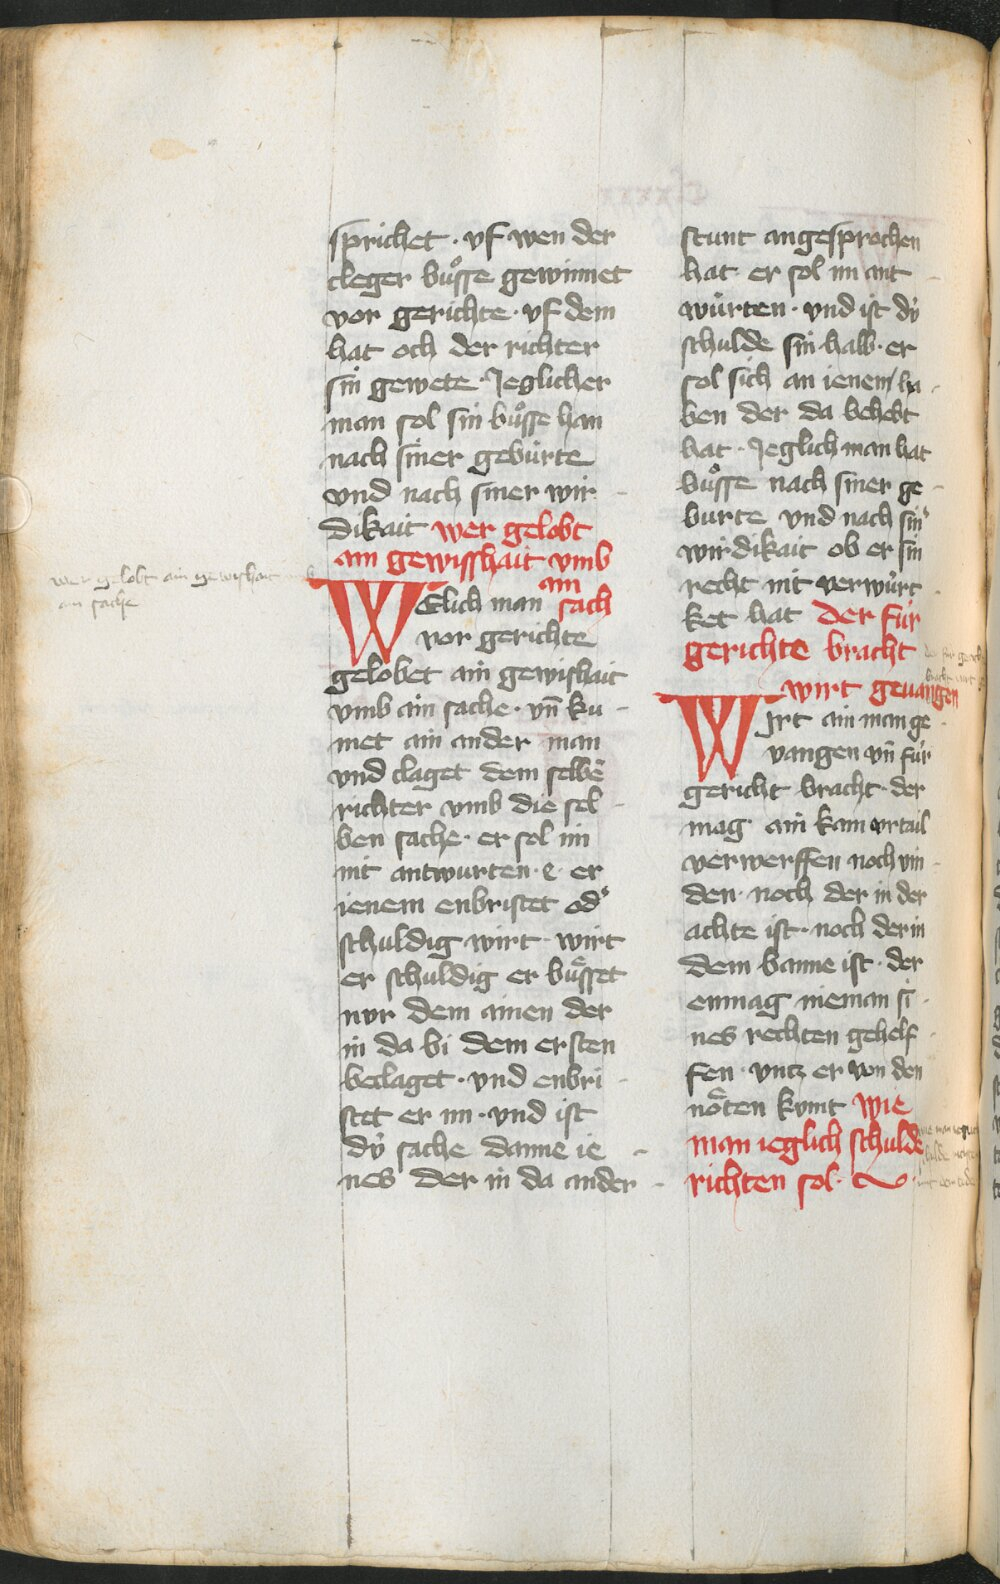 sprichet · vf wen der
cleger bůsse gewinnet
vor gerichte · vf dem
hat och der richter
sin gewete · Jeglicher
man sol sin bůsse han
nach siner gebúrte
vnd nach siner wir
dikait wer gelobt
ain gewisshait vmb
ain
WElich man sach
vor gerichte
gelobet ain gewishait
vmb ain sache · vn̄ ku
met ain ander man
vnd claget dem selbē
richter vmb die sel
ben sache · er sol im
nit antwurten · e · er
ienem enbristet od'
schuldig wirt · wirt
er schuldig er bůsset
nvr dem ainen der
in da bi dem ersten
beclaget · vnd enbri
stet er im · vnd ist
dv́ sache danne ie
nes der in da ander
wer gelobt ain gewishait vmb
ain sache
stunt angesprochen
hat er sol im ant
wúrten · vnd ist dv́
schulde sin halb · er
sol sich an ienem ha
ben der da behebt
hat · Jeglich man hat
bůsse nach siner ge
burte vnd nach sin'
wirdikait ob er sin
recht nit verwúrt
ket hat Der fúr
gerichte bracht
wirt geuangen
WIrt ain man ge
vangen vn̄ fúr
gericht bracht · der
mag ain kain vrtail
verwerffen noch vin
den · noch der in der
achte ist · noch der in
dem banne ist · der
enmag nieman si
nes rechten gehelf
fen · vntz er von den
nöten kvmt wie
man ieglich schulde
richten sol ·